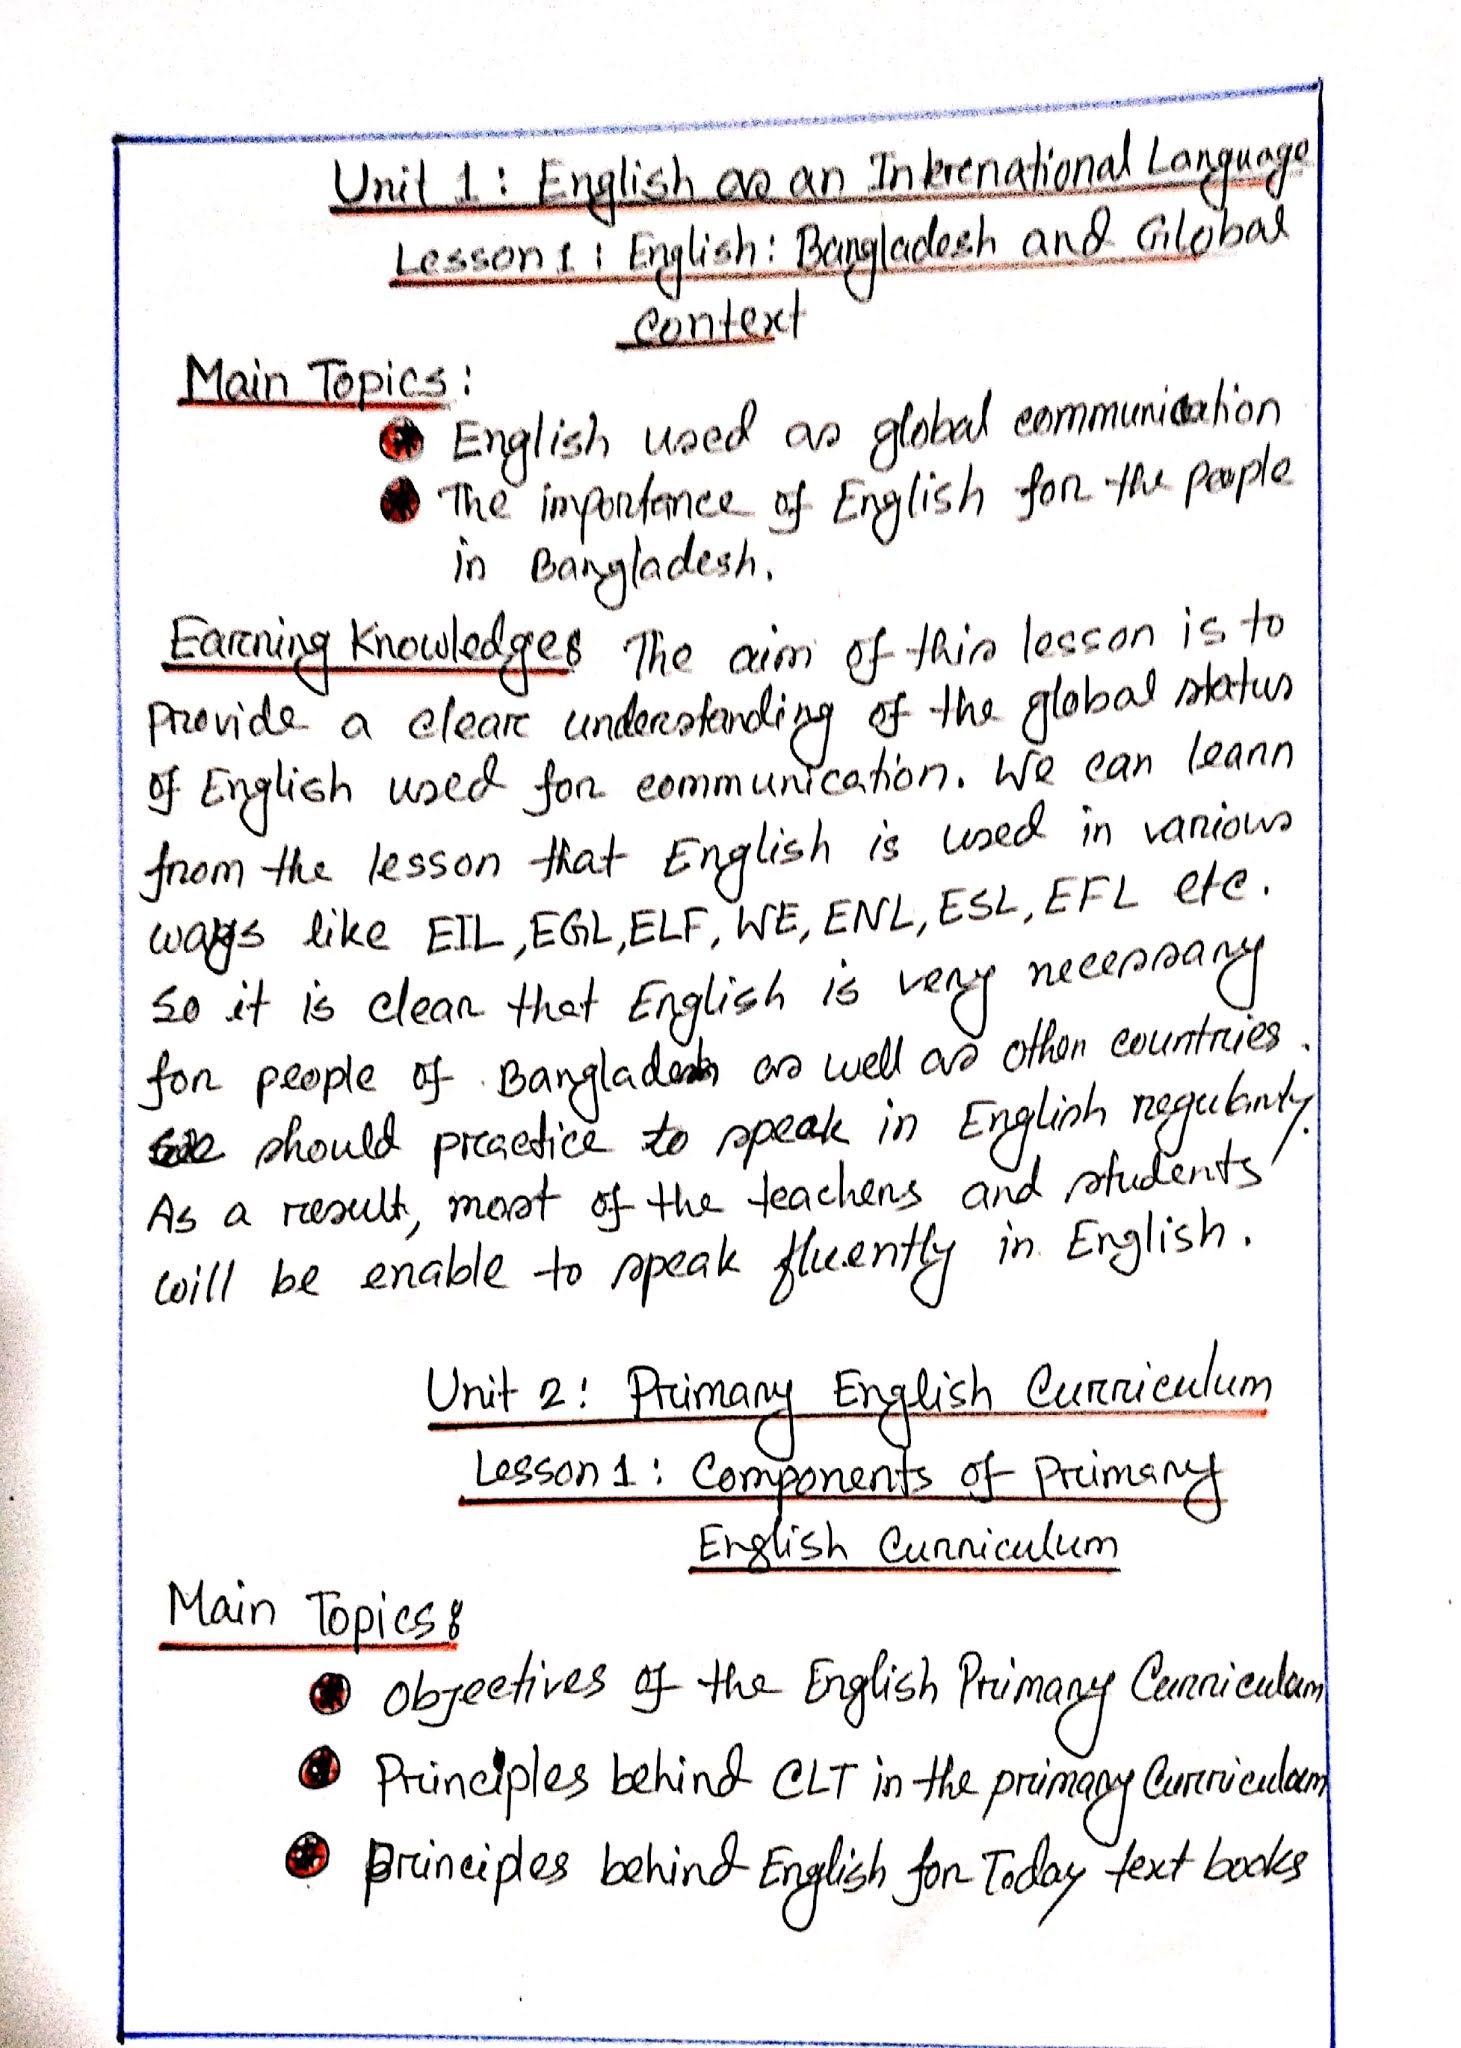 Unit 1: English as an International Language
Lesson 1: English: Bangladesh and Global
Context
Main Topics:
English used as global communication
The importance of English for the people
in Bangladesh.
Earning Knowledge: The aim of this lesson is to
provide a clear understanding of the global status
of English used for communication. We can learn
from the lesson that English is used in various
ways like EIL, EGL, ELF, WE, ENL, ESL, EFL etc.
So it is clear that English is very necessary
for people of Bangladesh as well as other countries.
should practice to speak in English regularly.
As a result, most of the teachers and students
will be enable to speak fluently in English.
Unit 2: Primary English Curriculum
Lesson 1: Components of Primary
English Curriculum
Main Topics:
Objectives of the English Primary Curriculum
Principles behind CLT in the primary Curriculum
Principles behind English for Today text books